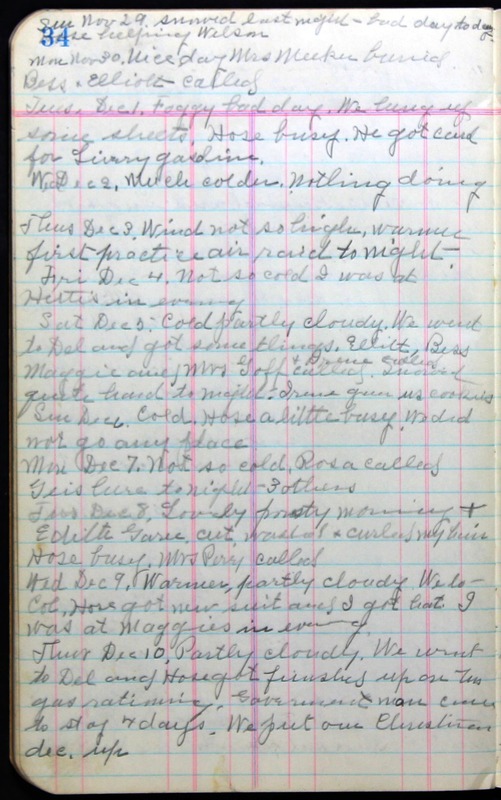 34
Sun Nov 29. snowed last night - bad day to day
Hose helping Wilson
Mon Nov 30. Nice day Mrs Meeker buried
Bess & Elliott called
Tues. Dec 1. Foggy bad day. We hung up
some sheets. Hose busy. He got card
for Livry gasoline.
Wed Dec 2. Much colder. Nothing doing
Thus Dec 3. Wind not so high, warmer
first practice air raid tonight.
Fri Dec 4. Not so cold I was at
in evening
Sat Dec 5. Cold partly cloudy. We went
to Del and got some things. Elliott, Bess
& Irene called
Maggie and Mrs Goff called. Snowed
quite hard tonight. Irene gave us cookies
Sun Dec 6. Cold. Hose a little busy. We did
not go any place
Mon Dec 7. Not so cold, Rosa called
Geis here tonight - 3 others
Tues Dec 8. Lovely frosty morning &
Edith cut, washed & curled my hair
Hose busy. Mrs Perry called
Wed Dec 9. Warmer, partly cloudy. We to -
Col. Hose got new suit and I got hat. I
was at Maggies in evening
Thur Dec 10. Partly cloudy. We went
to Del and Hose got finished up on his
gas rationing. Goverment man came
to stay 4 days. We put our Christmas
dec. up